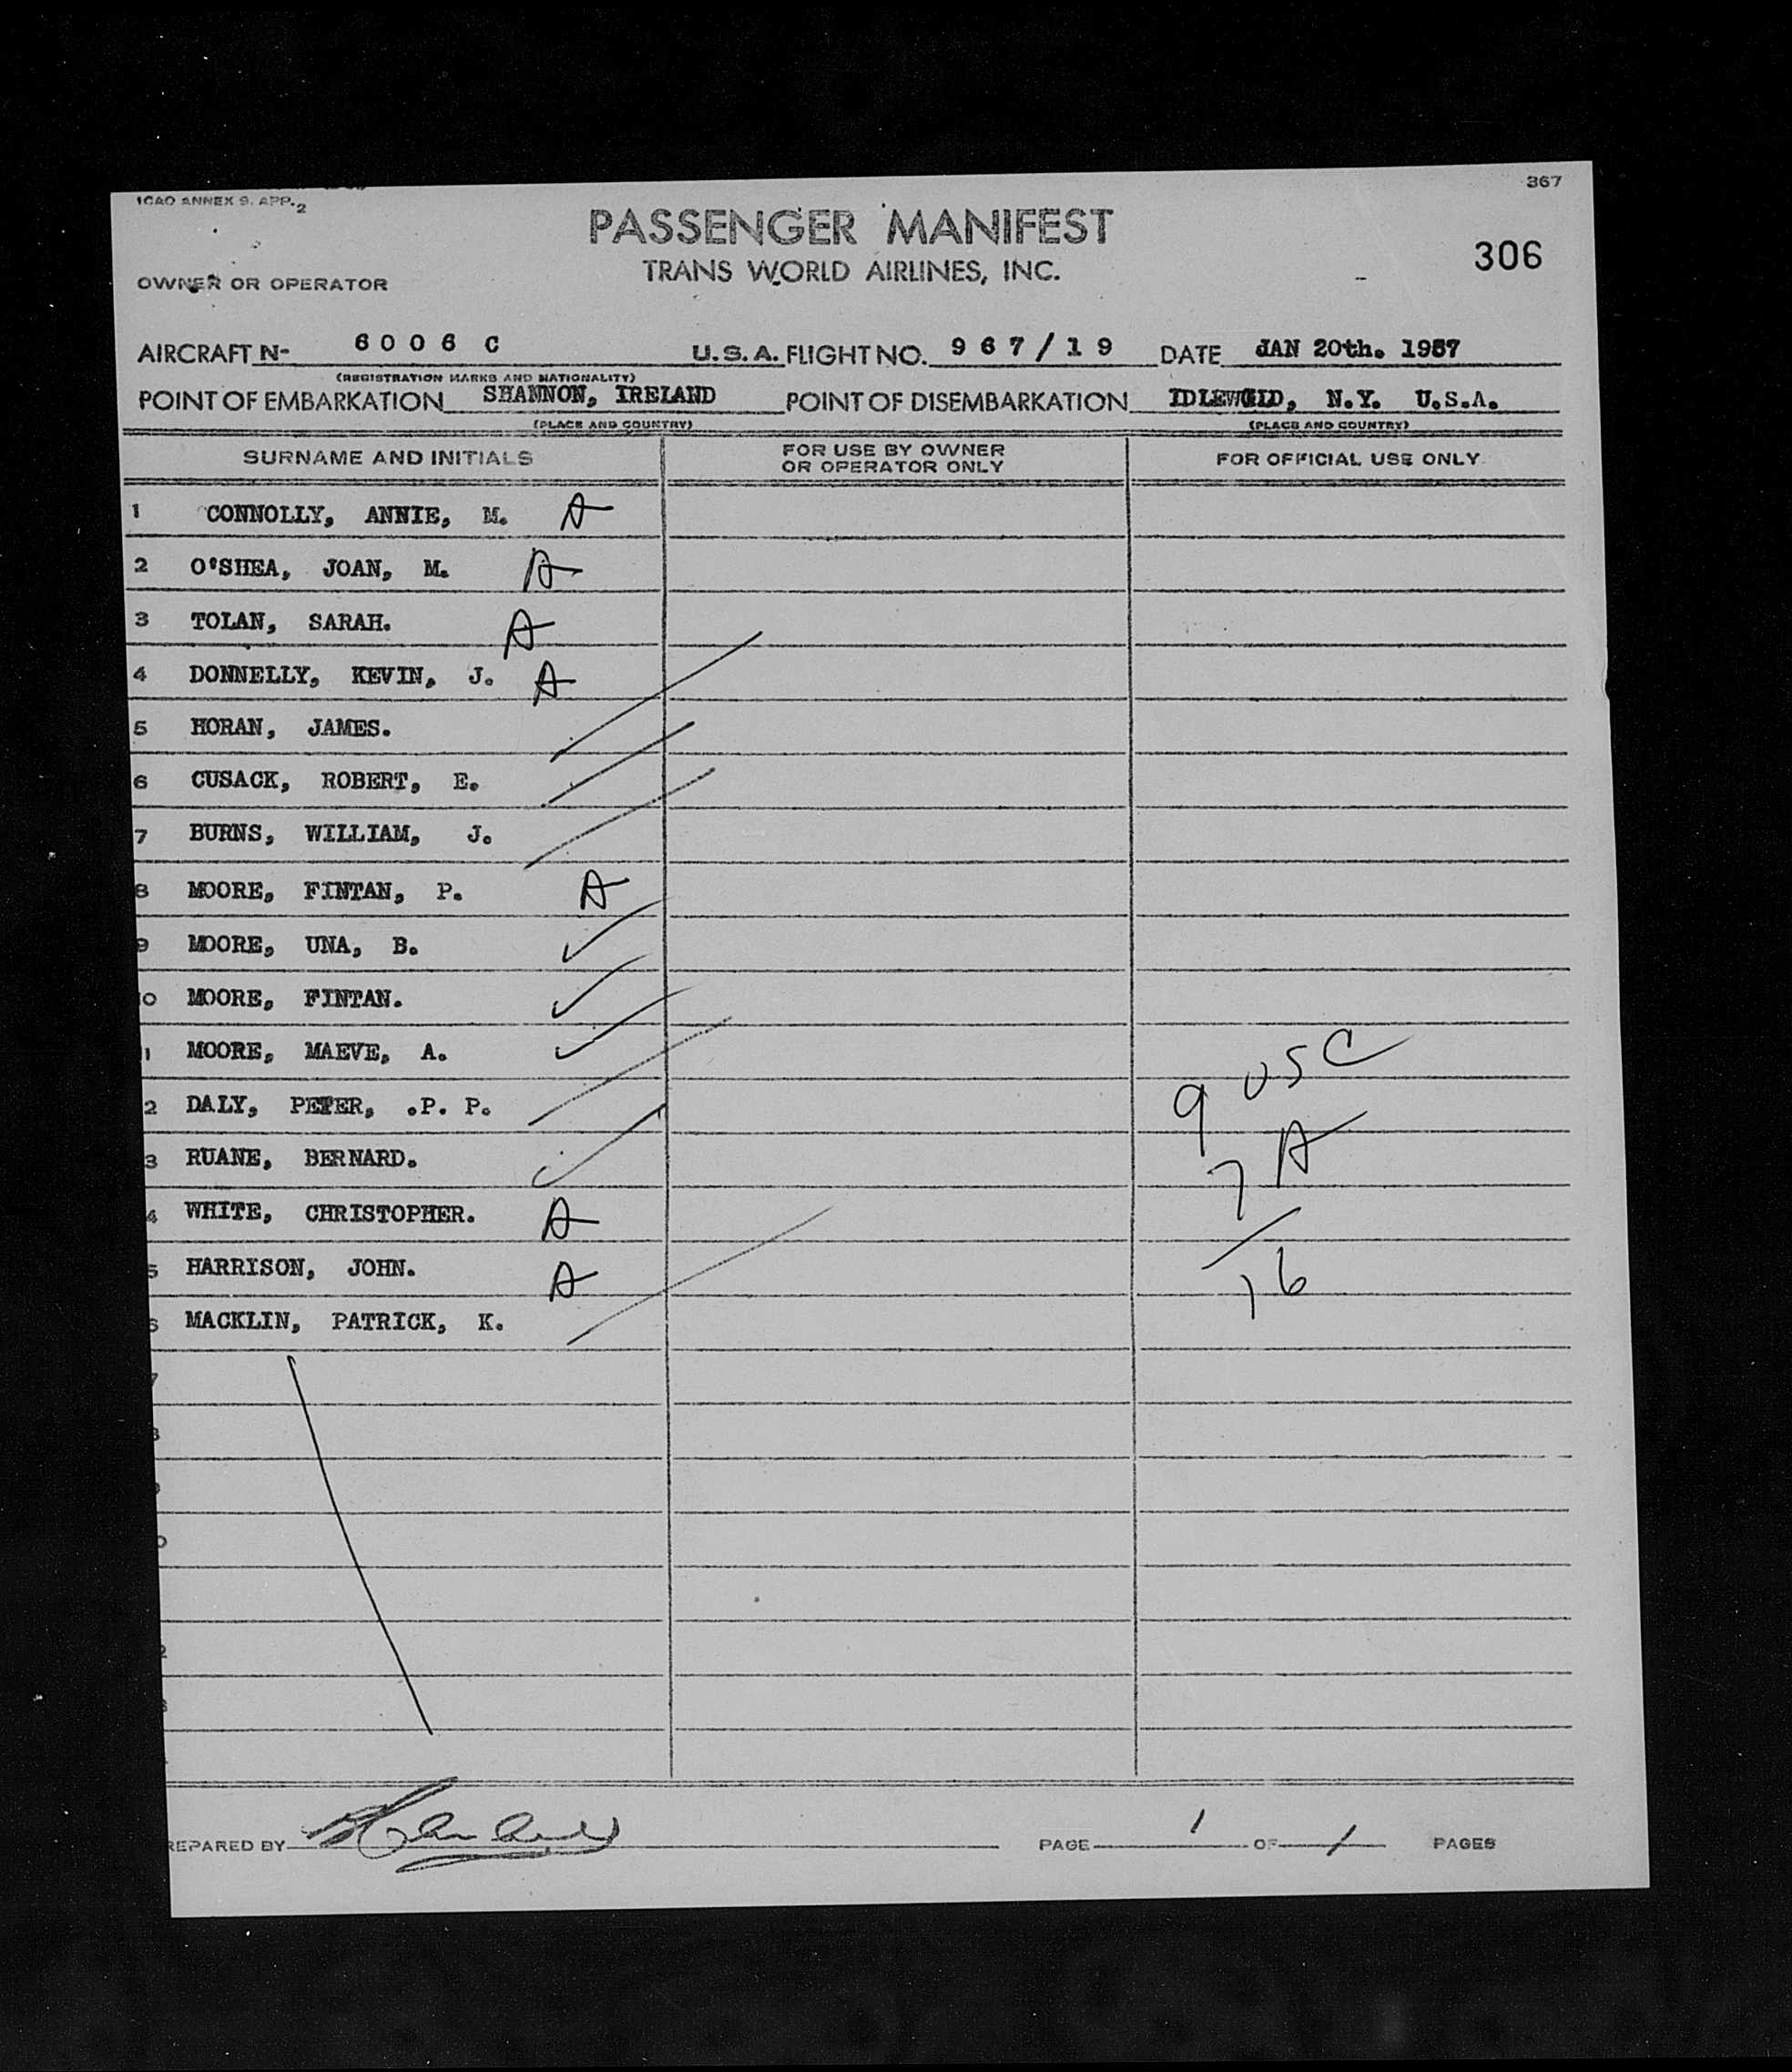 367
ICAO ANNEX 9. APP. 2
PASSENGER MANIFEST
306
TRANS WORLD AIRLINES, INC.
OWNER OR OPERATOR
AIRCRAFT N- 6006 C U.S.A. FLIGHT NO. 967/19 DATE JAN 20th. 1957
(REGISTRATION MARKS AND NATIONALITY)
POINT OF EMBARKATION SHANNON, IRELAND POINT OF DISEMBARKATION IDLEWILD, N.Y. U.S.A.
(PLACE AND COUNTRY) (PLACE AND COUNTRY)
SURNAME AND INITIALS FOR USE BY OWNER OR OPERATOR ONLY FOR OFFICIAL USE ONLY
1 CONNOLLY, ANNIE, M. A
2 O'SHEA, JOAN, M. A
3 TOLAN, SARAH. A
4 DONNELLY, KEVIN, J. A
5 HORAN, JAMES.
6 CUSACK, ROBERT, E.
7 BURNS, WILLIAM, J.
8 MOORE, FINTAN, P. A
9 MOORE, UNA, B. ✓
0 MOORE, FINTAN. ✓
1 MOORE, MAEVE, A. ✓
9 USC
2 DALY, PETER, .P. P.
7 A
3 RUANE, BERNARD. ✓
4 WHITE, CHRISTOPHER. A
16
5 HARRISON, JOHN. A
6 MACKLIN, PATRICK, K.
7
8
9
0
2
3
REPARED BY PAGE 1 OF 1 PAGES